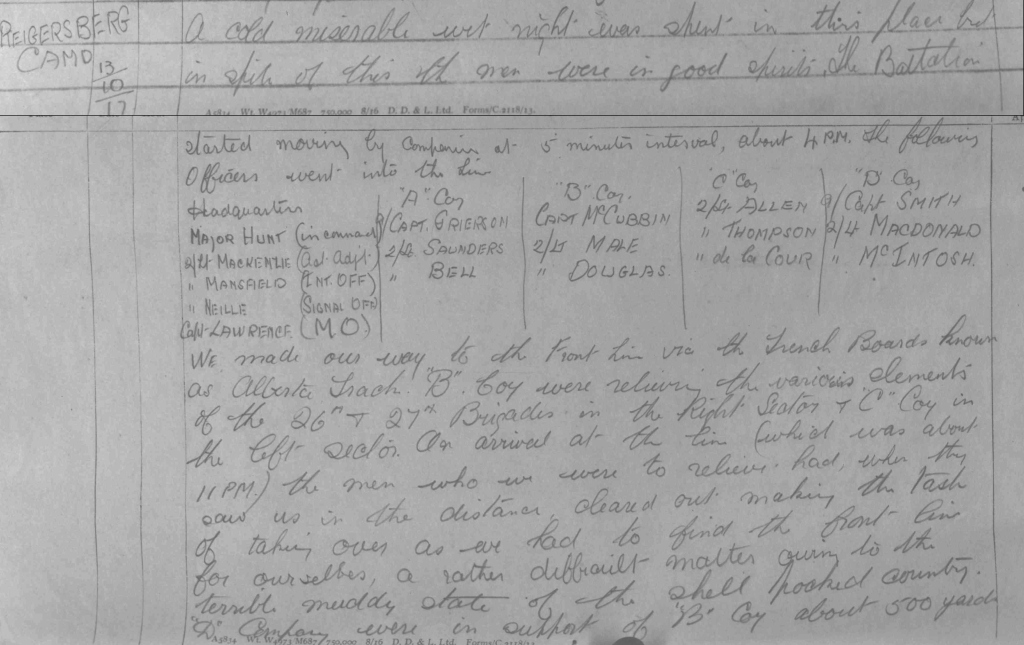 REIGERSBERG
CAMP
13
10
17
A cold miserable wet night was spent in this place but
in spite of this th men were in good spirits. The Battalion
A5834 Wt. W4973 M687 750,000 8/16 D. D. & L. Ltd. Forms/C.2118/13.
started moving by Companies at 5 minutes interval, about 4 P.M. The following
Officers went into the Line
Headquarters
MAJOR HUNT (in command)
2/Lt MACKENZIE (Act. Adjt.
" MANSFIELD (INT. OFF)
" NEILLE (SIGNAL OFF)
Capt. LAWRENCE (MO)
"A" Coy
CAPT. GRIERSON
2/Lt SAUNDERS
" BELL
"B" Coy.
CAPT McCUBBIN
2/Lt MALE
" DOUGLAS.
"C" Coy
2/Lt ALLEN
" THOMPSON
" de la COUR
"D" Coy
A/Capt SMITH
2/Lt MACDONALD
" McINTOSH.
WE made our way to th Front Line via th Trench Boards known
as Alberta Track. "B" Coy were relieving the various elements
of the 26th & 27th Brigades in the Right Sector & "C" Coy in
the left sector. On arrival at the line (which was about
11 PM.) the men who we were to relieve had, when they
saw us in the distance, cleared out making the task
of taking over as we had to find th front line
for ourselves, a rather difficult matter owing to the
terrible muddy state of the shell pocked country.
"D" Company were in support of "B" Coy about 500 yards
A5834 Wt. W4973 M687 750,000 8/16 D. D. & L. Ltd. Forms/C.2118/13.